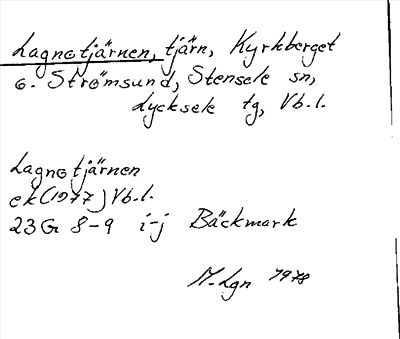 Lagnotjärnen, tjärn, Kyrkberget
o. Strömsund, Stensele sn,
Lycksele tg, Vb.l.
Lagnotjärnen
ek (1977) Vb.l.
23G 8-9 i-j Bäckmark
M. Lgn 1978